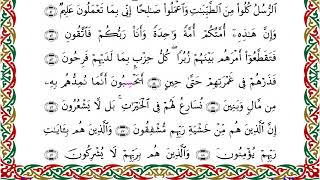 ٱلرُّسُلُ كُلُوا۟ مِنَ ٱلطَّيِّبَـٰتِ وَٱعْمَلُوا۟ صَـٰلِحًا ۖ إِنِّى بِمَا تَعْمَلُونَ عَلِيمٌ ٥١
وَإِنَّ هَـٰذِهِۦٓ أُمَّتُكُمْ أُمَّةً وَٰحِدَةً وَأَنَا۠ رَبُّكُمْ فَٱتَّقُونِ ٥٢
فَتَقَطَّعُوٓا۟ أَمْرَهُم بَيْنَهُمْ زُبُرًا ۖ كُلُّ حِزْبٍۭ بِمَا لَدَيْهِمْ فَرِحُونَ ٥٣
فَذَرْهُمْ فِى غَمْرَتِهِمْ حَتَّىٰ حِينٍ ٥٤ أَيَحْسَبُونَ أَنَّمَا نُمِدُّهُم بِهِۦ
مِن مَّالٍ وَبَنِينَ ٥٥ نُسَارِعُ لَهُمْ فِى ٱلْخَيْرَٰتِ ۚ بَل لَّا يَشْعُرُونَ ٥٦
إِنَّ ٱلَّذِينَ هُم مِّنْ خَشْيَةِ رَبِّهِم مُّشْفِقُونَ ٥٧ وَٱلَّذِينَ هُم بِـَٔايَـٰتِ
رَبِّهِمْ يُؤْمِنُونَ ٥٨ وَٱلَّذِينَ هُم بِرَبِّهِمْ لَا يُشْرِكُونَ ٥٩